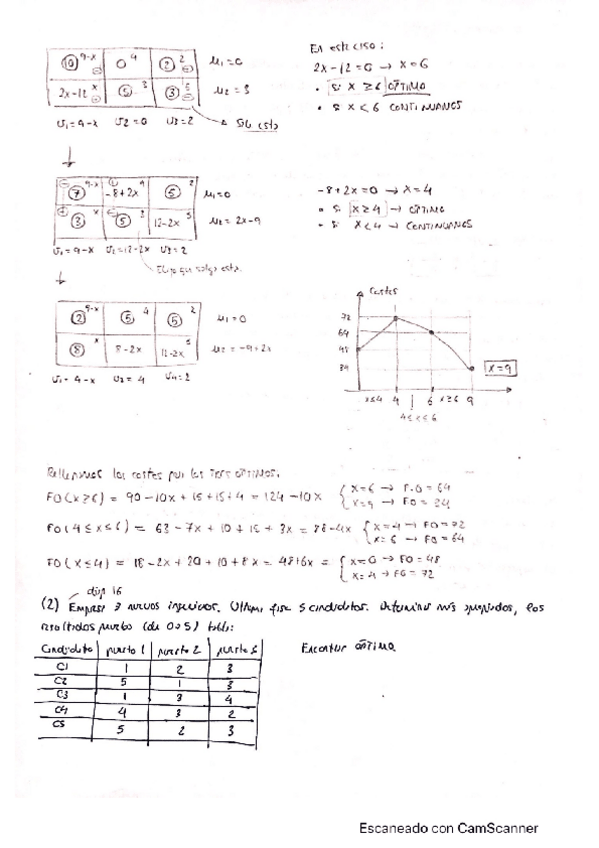 10 9-x 0 4 2 2 u1=0
2x-12 x 5 3 3 5 u2=3
v1=9-x v2=0 v3=2
En este caso:
2x-12=0 → x=6
• Si x≥6 ÓPTIMO
• Si x<6 CONTINUAMOS
7 9-x -8+2x 4 5 2 u1=0
3 x 5 3 12-2x 5 u2=2x-9
v1=9-x v2=12-2x v3=2
Elijo que salga esta
-8+2x=0 → x=4
• Si x≥4 → ÓPTIMO
• Si x<4 → CONTINUAMOS
2 9-x 5 4 5 2 u1=0
8 x 8-2x 12-2x 5 u2=-9+2x
v1=9-x v2=4 v3=2
Costes
72
64
48
34
x≤4 4 6 x≥6 9
4≤x≤6
x=9
Rellenamos los costes por los tres óptimos.
FO(x≥6) = 90-10x+15+15+4 = 124-10x { x=6 → F.O=64
x=9 → FO=34
FO(4≤x≤6) = 63-7x+10+15+3x = 88-4x { x=4 → FO=72
x=6 → FO=64
FO(x≤4) = 18-2x+20+10+8x = 48+6x = { x=0 → FO=48
x=4 → FO=72
diap 16
(2) Empresa 3 nuevos ingenieros. 5 candidatos. Determinar más apropiados, los
resultados prueba (de 0 a 5) tabla:
Candidato puesto 1 puesto 2 puesto 3
C1 1 2 3
C2 5 1 3
C3 1 3 4
C4 4 3 2
C5 5 2 3
Encontrar óptimo.
Escaneado con CamScanner